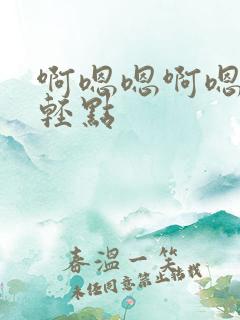 啊嗯嗯啊嗯
轻點
春溫一笑
未任同意禁止转载